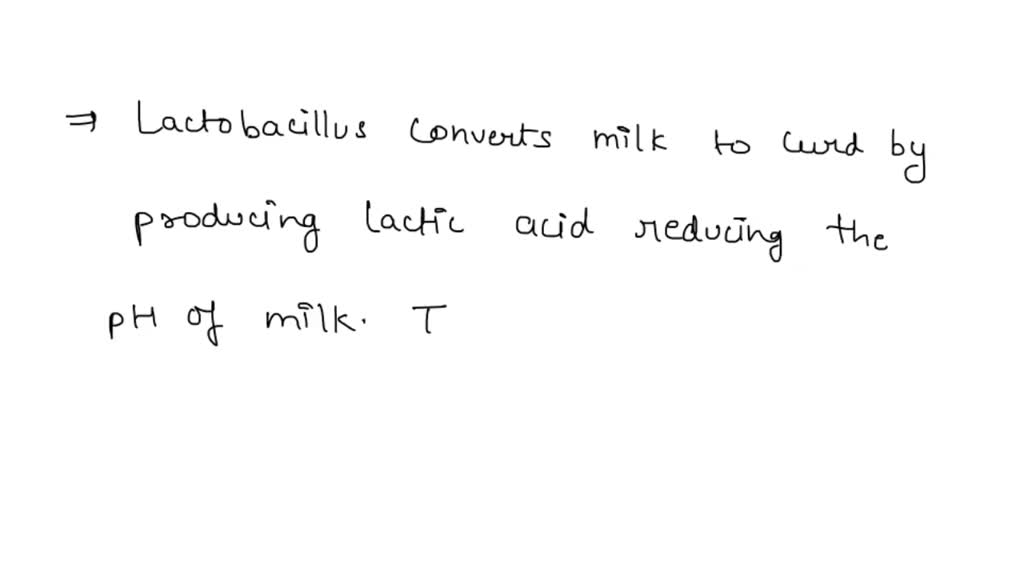 ⇒ Lactobacillus converts milk to curd by
producing lactic acid reducing the
pH of milk. T